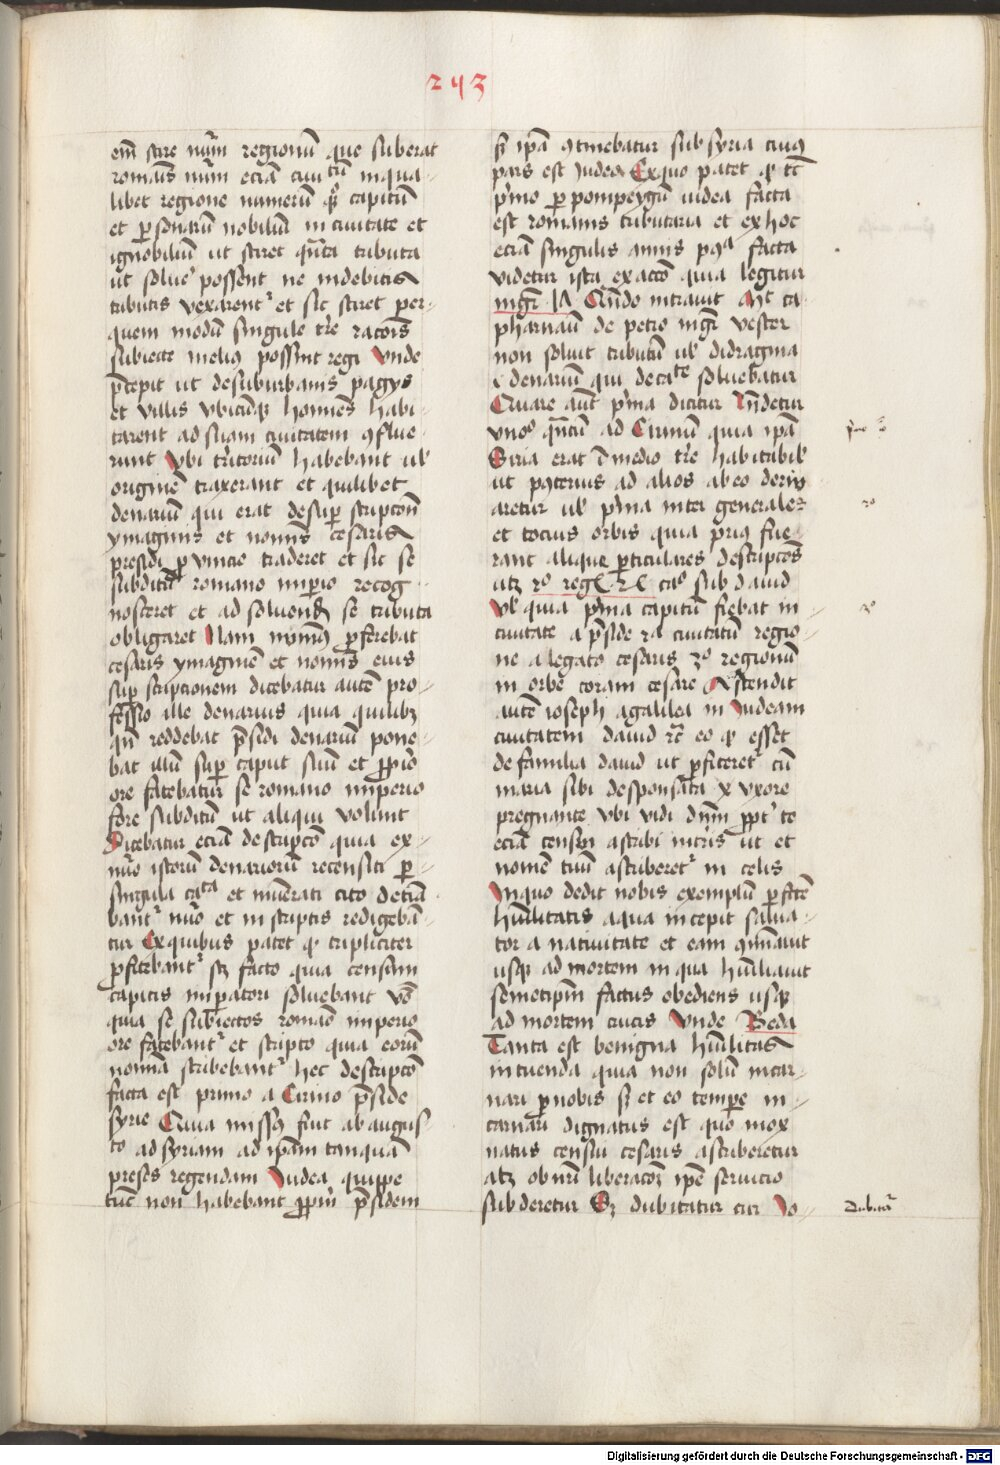 293
em̄ scire nūm regionū que suberāt
romāis nūm eciā ciuitatū in qua-
libet regione numerū capitū
et personarū nobiliū in ciuitate et
ignobiliū ut sciret quāta tributa
ut soluē possent ne indebitis
tributis vexarent' et sic sciret per-
quem modū singule tr̄re racōis
subiecte meliꝯ possint regi Vnde
p̄cepit ut de suburbanis pagys
et villis vbicūqꝫ homīes habi-
tarent ad suam ciuitatem ꝯflue-
runt Vbi tr̄itoriū habebant ul'
originē traxerant et quilibet
denariū qui erat desup scriptōn
ymaginis et nomīs cesaris
presidi ꝓuincie traderet et sic se
subditū romano imꝑio recog-
nosceret et ad soluend se tributa
obligaret Nam nūmꝯ p̄ferebat
cesaris ymaginē et nomīs eius
sup scriptionem dicebatur autē pro-
fessio ille denarius quia quilibꝫ
qn̄ reddebat p̄sidi denariū pone-
bat illū sup caput suū et ꝓprio
ore fatebatur se romano imperio
fore subditū ut aliqui volunt
Dicebatur eciā descripcō quia ex-
nūo istorū denariorū recensiti per-
singula et nūerati cito
bant' nūo et in scriptis redigebā-
tur Ex quibus patet qꝫ tripliciter
ꝓfitebant' sꝫ facto quia censum
capitis imꝑatori soluebant
quia se subiectos romāo imperio
ore fatebant' et scripto quia eorū
nomīa scribebant' hec descripcō
facta est primo a Cirino p̄side
syrie Quia missꝯ fuit ab augus-
to ad syriam ad ipsam tanquā
preses regendam Iudea quippe
tūc non habebant ꝓpriū p̄sidem
sꝫ ip̄a ꝯtinebatur sub syria cuiꝯ
pars est Iudea Ex quo patet qꝫ
p'mo per pompeygū iudea facta
est romanis tributaria et ex hoc
eciā singulis annis facta
videtur ista exactō quia legitur
Quādo intrauit ca-
pharnaū de petro mgr̄ vester
non soluit tributū ul' didragma
denariū qui soluebatur
Quare aūt p'ma dicitur Rn̄detur
vno qn̄tū ad Cirinū quia ip̄a
Siria erat ī medio tr̄re habitabil'
ut ad alios ab eo deriu-
aretur ul' p'ma inter generales
et tocius orbis quia priꝯ fue-
rant alique ꝑticulares descripcōes
utꝫ 2º reg sub dauid
Ul' quia p'ma capitū fiebat in
ciuitate a p̄side 2ª ciuitatū regio-
ne a legato cesaris 3º regionū
in orbe coram cesare Ascendit
autē ioseph a galilea in Iudeam
ciuitatem dauid eo qꝫ esset
de familia dauid ut ꝓfiteret' cū
maria sibi desponsata uxore
pregnante Vbi vidi dn̄m ꝓpt' te
eciā censui ascribi in t'ris ut et
nomē tuū ascriberet' in celis
In quo dedit nobis exemplū perfectē
hūilitatis a qua incepit salua-
tor a natiuitate et eam ꝯtinuauit
usqꝫ ad mortem in qua hūiliauit
semetip̄m factus obediens usqꝫ
ad mortem crucis Vnde Beda
Tanta est benigna hūilitas
intuenda quia non solū incar-
nari ꝓ nobis sꝫ et eo tempore in-
carnari dignatus est quo mox
natus censui cesaris ascriberetur
atqꝫ ob nr̄i liberacōꝫ ip̄e seruicio
subderetur Sꝫ dubitatur cur Io-
2º
3º
Dubitat'
Digitalisierung gefördert durch die Deutsche Forschungsgemeinschaft - DFG